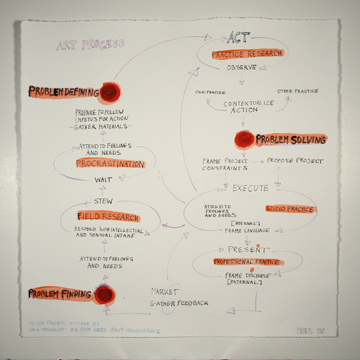 ART PROCESS
ACT
PRACTICE RESEARCH
OBSERVE
OWN PRACTICE
OTHER PRACTICE
CONTEXTUALIZE
ACTION
PROBLEM SOLVING
FRAME PROJECT
CONSTRAINTS
PROPOSE PROJECT
EXECUTE
ATTEND TO FEELINGS
AND NEEDS
[INTERNAL]
FRAME LANGUAGE
STUDIO PRACTICE
PRESENT
PROFESSIONAL PRACTICE
FRAME DISCOURSE
[EXTERNAL]
MARKET
GATHER FEEDBACK
PROBLEM DEFINING
PREPARE TO FOLLOW
IMPETUS FOR ACTION
GATHER MATERIALS
ATTEND TO FEELINGS
AND NEEDS
PROCRASTINATION
WAIT
STEW
FIELD RESEARCH
RESPOND WITH INTELLECTUAL
AND SENSUAL INTAKE
ATTEND TO FEELINGS
AND NEEDS
PROBLEM FINDING